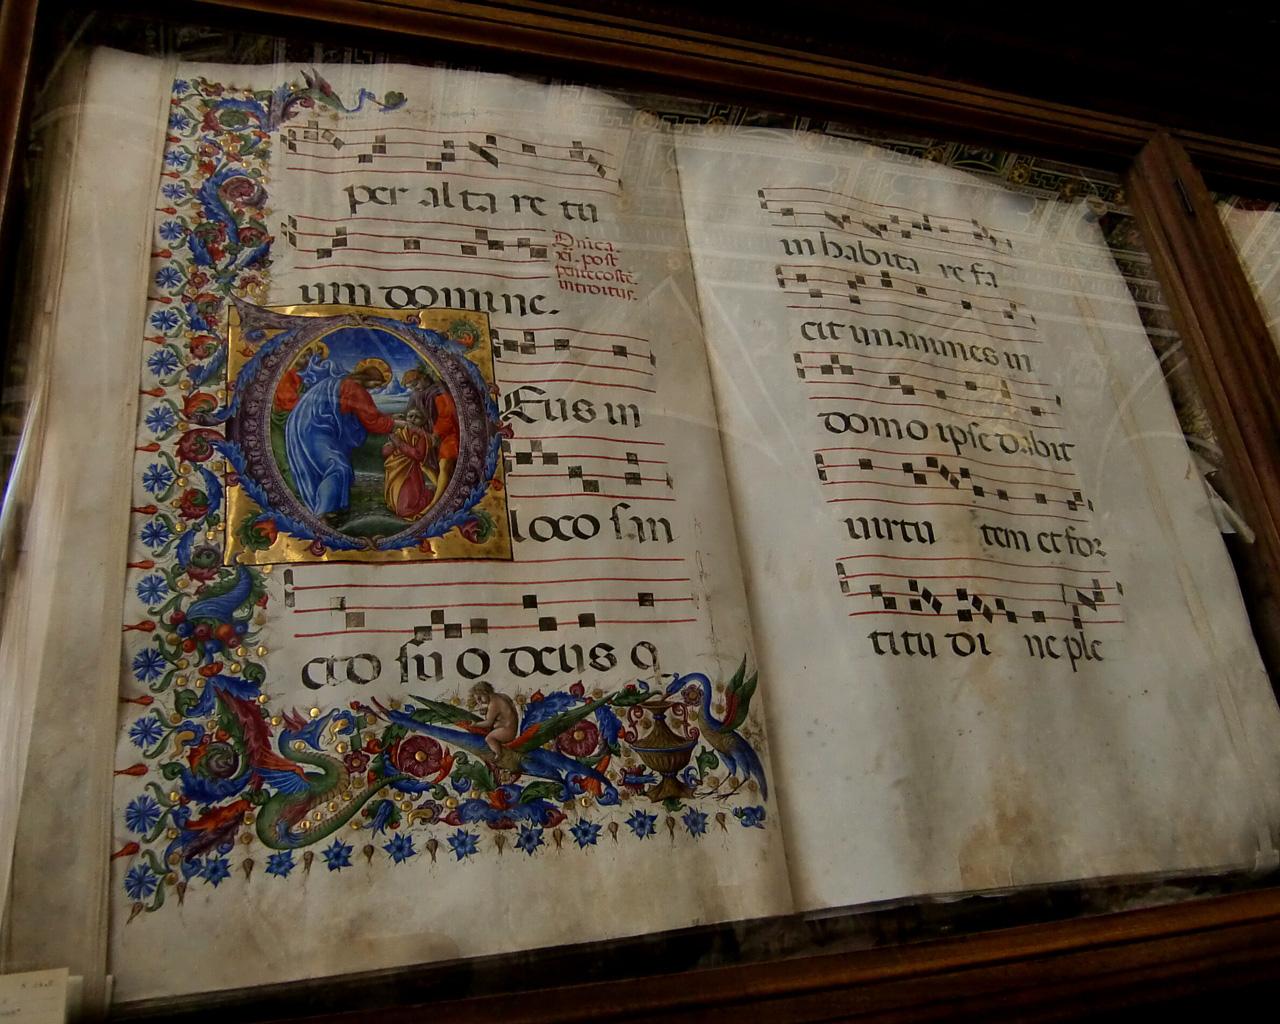 per alta re tu
um domine.
Dnica
xi. post
pentecoste.
introitus.
Eus in
loco san
cto suo deus q
inhabita re fa
cit unanimes in
domo ipse dabit
uirtu tem et for
titu di ne ple